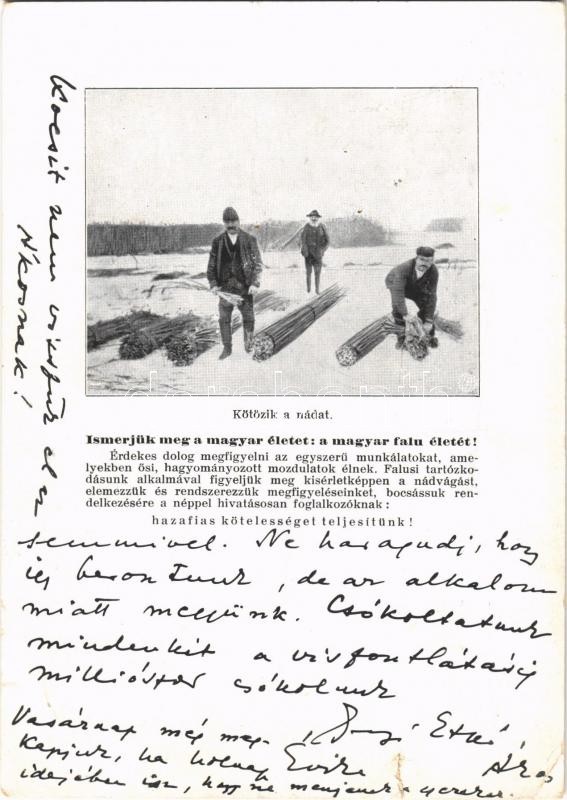 Kötözik a nádat.
Ismerjük meg a magyar életet: a magyar falu életét!
Érdekes dolog megfigyelni az egyszerű munkálatokat, ame-
lyekben ősi, hagyományozott mozdulatok élnek. Falusi tartózko-
dásunk alkalmával figyeljük meg kisérletképpen a nádvágást,
elemezzük és rendszerezzük megfigyeléseinket, bocsássuk ren-
delkezésére a néppel hivatásosan foglalkozóknak:
hazafias kötelességet teljesitünk!
Kocsit nem viszünk el
Ákosnak!
semmivel. Ne haragudj, hogy
így, de az alkalom
miatt megyünk. Csókoltatunk
mindenkit a viszontlátásig
milliószor csókolunk
Vasárnap még meg-
kapjuk, ha holnap
idejében írsz, hogy ne menjenek